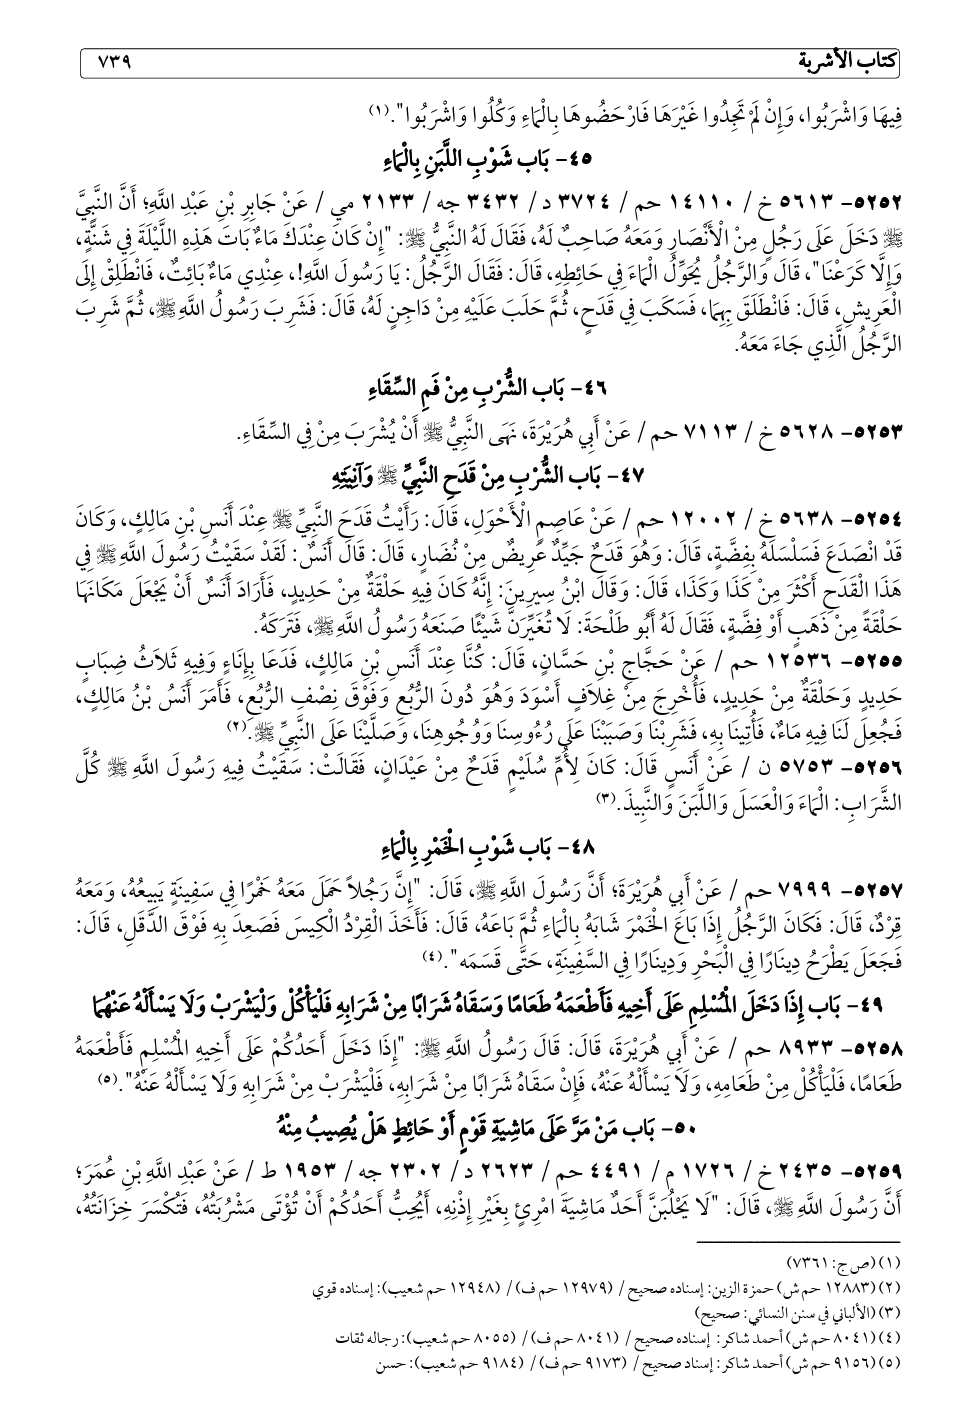 كتاب الأشربة ٧٣٩
فِيهَا وَاشْرَبُوا، وَإِنْ لَمْ تَجِدُوا غَيْرَهَا فَارْحَضُوهَا بِالْمَاءِ وَكُلُوا وَاشْرَبُوا".(١)
٤٥- بَاب شَوْبِ اللَّبَنِ بِالْمَاءِ
٥٢٥٢- ٥٦١٣ خ/ ١٤١١٠ حم/ ٣٧٢٤ د/ ٣٤٣٢ جه/ ٢١٣٣ مي/ عَنْ جَابِرِ بْنِ عَبْدِ اللَّهِ؛ أَنَّ النَّبِيَّ
ﷺ دَخَلَ عَلَى رَجُلٍ مِنْ الْأَنْصَارِ وَمَعَهُ صَاحِبٌ لَهُ، فَقَالَ لَهُ النَّبِيُّ ﷺ: "إِنْ كَانَ عِنْدَكَ مَاءٌ بَاتَ هَذِهِ اللَّيْلَةَ فِي شَنَّةٍ،
وَإِلَّا كَرَعْنَا"، قَالَ وَالرَّجُلُ يُحَوِّلُ الْمَاءَ فِي حَائِطِهِ، قَالَ: فَقَالَ الرَّجُلُ: يَا رَسُولَ اللَّهِ!، عِنْدِي مَاءٌ بَائِتٌ، فَانْطَلِقْ إِلَى
الْعَرِيشِ، قَالَ: فَانْطَلَقَ بِهِمَا، فَسَكَبَ فِي قَدَحٍ، ثُمَّ حَلَبَ عَلَيْهِ مِنْ دَاجِنٍ لَهُ، قَالَ: فَشَرِبَ رَسُولُ اللَّهِ ﷺ، ثُمَّ شَرِبَ
الرَّجُلُ الَّذِي جَاءَ مَعَهُ.
٤٦- بَاب الشُّرْبِ مِنْ فَمِ السِّقَاءِ
٥٢٥٣- ٥٦٢٨ خ/ ٧١١٣ حم/ عَنْ أَبِي هُرَيْرَةَ، نَهَى النَّبِيُّ ﷺ أَنْ يُشْرَبَ مِنْ فِي السِّقَاءِ.
٤٧- بَاب الشُّرْبِ مِنْ قَدَحِ النَّبِيِّ ﷺ وَآنِيَتِهِ
٥٢٥٤- ٥٦٣٨ خ/ ١٢٠٠٢ حم/ عَنْ عَاصِمٍ الْأَحْوَلِ، قَالَ: رَأَيْتُ قَدَحَ النَّبِيِّ ﷺ عِنْدَ أَنَسِ بْنِ مَالِكٍ، وَكَانَ
قَدْ انْصَدَعَ فَسَلْسَلَهُ بِفِضَّةٍ، قَالَ: وَهُوَ قَدَحٌ جَيِّدٌ عَرِيضٌ مِنْ نُضَارٍ، قَالَ: قَالَ أَنَسٌ: لَقَدْ سَقَيْتُ رَسُولَ اللَّهِ ﷺ فِي
هَذَا الْقَدَحِ أَكْثَرَ مِنْ كَذَا وَكَذَا، قَالَ: وَقَالَ ابْنُ سِيرِينَ: إِنَّهُ كَانَ فِيهِ حَلْقَةٌ مِنْ حَدِيدٍ، فَأَرَادَ أَنَسٌ أَنْ يَجْعَلَ مَكَانَهَا
حَلْقَةً مِنْ ذَهَبٍ أَوْ فِضَّةٍ، فَقَالَ لَهُ أَبُو طَلْحَةَ: لَا تُغَيِّرَنَّ شَيْئًا صَنَعَهُ رَسُولُ اللَّهِ ﷺ، فَتَرَكَهُ.
٥٢٥٥- ١٢٥٣٦ حم/ عَنْ حَجَّاجِ بْنِ حَسَّانٍ، قَالَ: كُنَّا عِنْدَ أَنَسِ بْنِ مَالِكٍ، فَدَعَا بِإِنَاءٍ وَفِيهِ ثَلَاثُ ضِبَابٍ
حَدِيدٍ وَحَلْقَةٌ مِنْ حَدِيدٍ، فَأُخْرِجَ مِنْ غِلَافٍ أَسْوَدَ وَهُوَ دُونَ الرُّبُعِ وَفَوْقَ نِصْفِ الرُّبُعِ، فَأَمَرَ أَنَسُ بْنُ مَالِكٍ،
فَجُعِلَ لَنَا فِيهِ مَاءٌ، فَأُتِينَا بِهِ، فَشَرِبْنَا وَصَبَبْنَا عَلَى رُءُوسِنَا وَوُجُوهِنَا، وَصَلَّيْنَا عَلَى النَّبِيِّ ﷺ.(٢)
٥٢٥٦- ٥٧٥٣ ن/ عَنْ أَنَسٍ قَالَ: كَانَ لِأُمِّ سُلَيْمٍ قَدَحٌ مِنْ عَيْدَانٍ، فَقَالَتْ: سَقَيْتُ فِيهِ رَسُولَ اللَّهِ ﷺ كُلَّ
الشَّرَابِ: الْمَاءَ وَالْعَسَلَ وَاللَّبَنَ وَالنَّبِيذَ.(٣)
٤٨- بَاب شَوْبِ الْخَمْرِ بِالْمَاءِ
٥٢٥٧- ٧٩٩٩ حم/ عَنْ أَبِي هُرَيْرَةَ؛ أَنَّ رَسُولَ اللَّهِ ﷺ، قَالَ: "إِنَّ رَجُلاً حَمَلَ مَعَهُ خَمْرًا فِي سَفِينَةٍ يَبِيعُهُ، وَمَعَهُ
قِرْدٌ، قَالَ: فَكَانَ الرَّجُلُ إِذَا بَاعَ الْخَمْرَ شَابَهُ بِالْمَاءِ ثُمَّ بَاعَهُ، قَالَ: فَأَخَذَ الْقِرْدُ الْكِيسَ فَصَعِدَ بِهِ فَوْقَ الدَّقَلِ، قَالَ:
فَجَعَلَ يَطْرَحُ دِينَارًا فِي الْبَحْرِ وَدِينَارًا فِي السَّفِينَةِ، حَتَّى قَسَمَه".(٤)
٤٩- بَاب إِذَا دَخَلَ الْمُسْلِمِ عَلَى أَخِيهِ فَأَطْعَمَهُ طَعَامًا وَسَقَاهُ شَرَابًا مِنْ شَرَابِهِ فَلْيَأْكُلْ وَلْيَشْرَبْ وَلَا يَسْأَلْهُ عَنْهُمَا
٥٢٥٨- ٨٩٣٣ حم/ عَنْ أَبِي هُرَيْرَةَ، قَالَ: قَالَ رَسُولُ اللَّهِ ﷺ: "إِذَا دَخَلَ أَحَدُكُمْ عَلَى أَخِيهِ الْمُسْلِمِ فَأَطْعَمَهُ
طَعَامًا، فَلْيَأْكُلْ مِنْ طَعَامِهِ، وَلَا يَسْأَلْهُ عَنْهُ، فَإِنْ سَقَاهُ شَرَابًا مِنْ شَرَابِهِ، فَلْيَشْرَبْ مِنْ شَرَابِهِ وَلَا يَسْأَلْهُ عَنْهُ".(٥)
٥٠- بَاب مَنْ مَرَّ عَلَى مَاشِيَةِ قَوْمٍ أَوْ حَائِطٍ هَلْ يُصِيبُ مِنْهُ
٥٢٥٩- ٢٤٣٥ خ/ ١٧٢٦ م/ ٤٤٩١ حم/ ٢٦٢٣ د/ ٢٣٠٢ جه/ ١٩٥٣ ط/ عَنْ عَبْدِ اللَّهِ بْنِ عُمَرَ؛
أَنَّ رَسُولَ اللَّهِ ﷺ، قَالَ: "لَا يَحْلُبَنَّ أَحَدٌ مَاشِيَةَ امْرِئٍ بِغَيْرِ إِذْنِهِ، أَيُحِبُّ أَحَدُكُمْ أَنْ تُؤْتَى مَشْرُبَتُهُ، فَتُكْسَرَ خِزَانَتُهُ،
(١) (ص ج: ٧٣٦١)
(٢) (١٢٨٨٣ حم ش) حمزة الزين: إسناده صحيح/ (١٢٩٧٩ حم ف)/ (١٢٩٤٨ حم شعيب): إسناده قوي
(٣) (الألباني في سنن النسائي: صحيح)
(٤) (٨٠٤١ حم ش) أحمد شاكر: إسناده صحيح/ (٨٠٤١ حم ف)/ (٨٠٥٥ حم شعيب): رجاله ثقات
(٥) (٩١٥٦ حم ش) أحمد شاكر: إسناد صحيح/ (٩١٧٣ حم ف)/ (٩١٨٤ حم شعيب): حسن